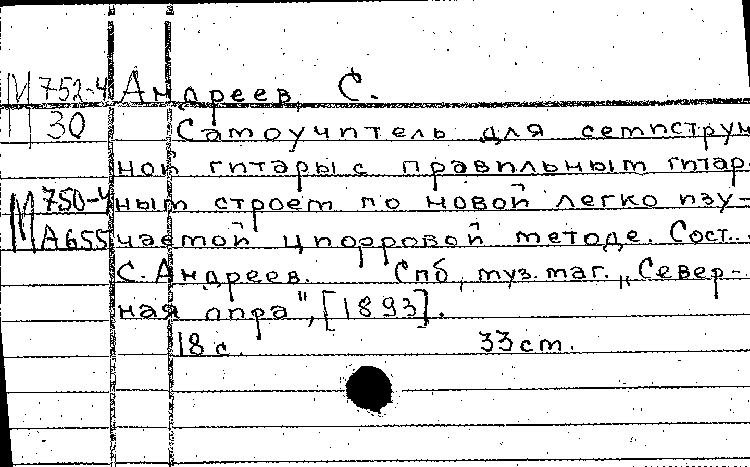 М 752-4 Андреев, С.
П 30 Самоучитель для семиструн
ной гитары с правильным гитар
М 750-4 ным строем по новой легко изу-
А655 чаемой цифровой методе. Сост.
С. Андреев. Спб, муз. маг. „Север-
ная лира", [1893].
18 с. 33 см.